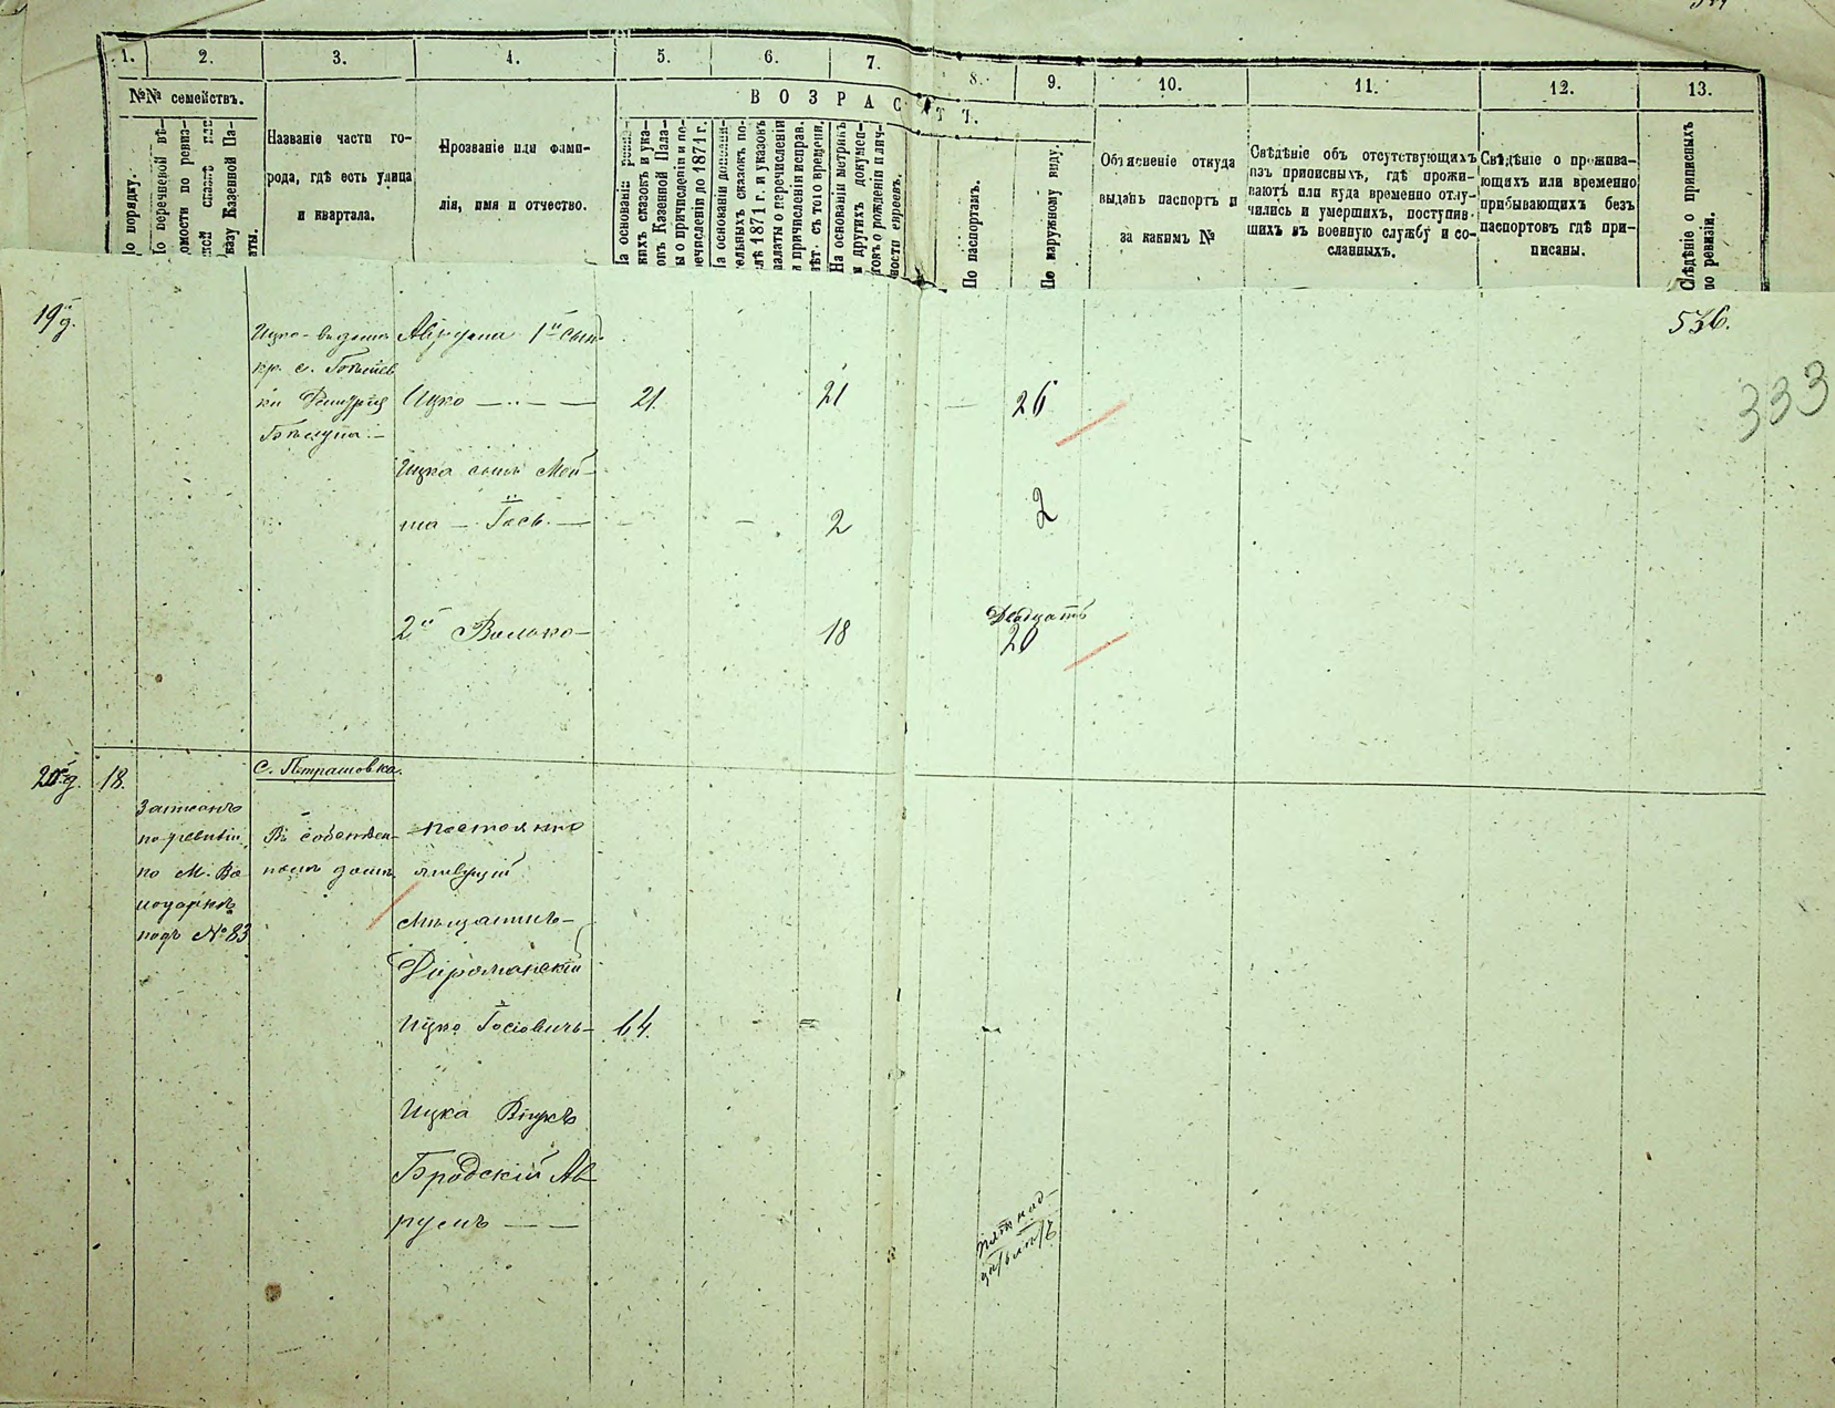 1. 2. 3. 4. 5. 6. 7. 8. 9. 10. 11. 12. 13.
№№ семействъ.
ВОЗРАСТЪ.
По порядку.
По перечневой вѣ-
домости по ревиз-
ской сказкѣ или
указу Казенной Па-
латы.
Названіе части го-
рода, гдѣ есть улица
и квартала.
Прозваніе или фами-
лія, имя и отчество.
На основаніи ревиз-
скихъ сказокъ и ука-
зовъ Казенной Пала-
ты о причисленіи и пе-
речисленіи до 1871 г.
На основаніи дополни-
тельныхъ сказокъ по-
слѣ 1871 г. и указовъ
палаты о перечисленіи
и причисленіи исправ.
лѣт. съ того времени.
На основаніи метрикъ
и другихъ докумен-
товъ о рожденіи и лич-
ности евреевъ.
По паспортамъ.
По наружному виду.
Объясненіе откуда
выданъ паспортъ и
за какимъ №
Свѣдѣніе объ отсутствующихъ
изъ приписныхъ, гдѣ прожи-
ваютъ или куда временно отлу-
чились и умершихъ, поступив-
шихъ въ военную службу и со-
сланныхъ.
Свѣдѣніе о прожива-
ющихъ или временно
прибывающихъ безъ
паспортовъ гдѣ при-
писаны.
Слѣдѣніе о приписныхъ
по ревизіи.
19й д.
536.
333
Ицко - въ домѣ
кр. с.
ки
Аврума 1й сын.
Ицко — 21. 21 — 26
Ицка сынъ Мой-
ша — Іось. — — — 2 2
2й Волько — 18 Двадцать
20
д. 18.
С. Петрашовка.
Записанъ
по ревизіи
по М.
подъ № 83
Въ собствен-
номъ домѣ
постоянно
живущій
Мѣщанинъ —
Ицко Іосіовичъ — 64.
Ицка Внукъ
Бродскій Ав-
румъ — —
Пятнад-
цать